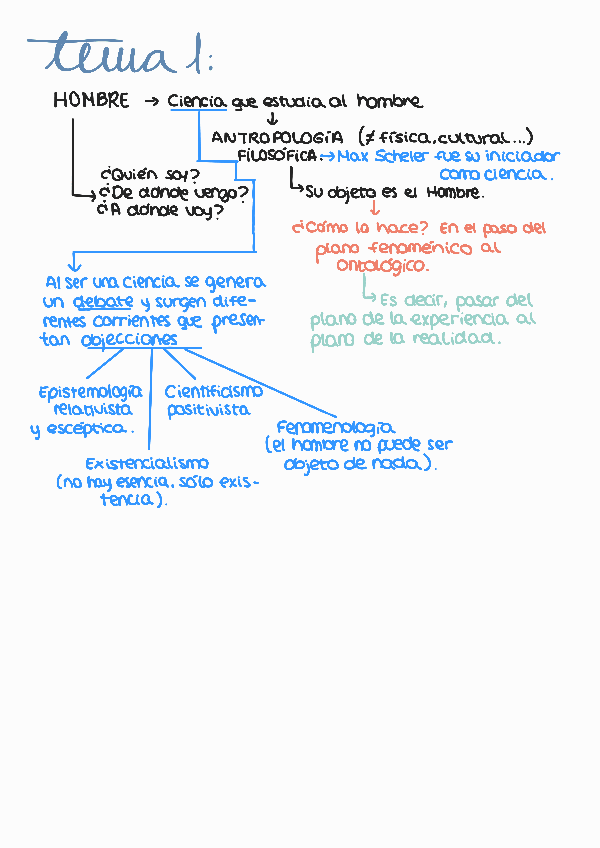 tema 1:
HOMBRE → Ciencia que estudia al hombre
ANTROPOLOGÍA (≠ física, cultural...)
FILOSÓFICA. → Max Scheler fue su iniciador
como ciencia.
¿Quién soy?
¿De dónde vengo?
¿A dónde voy?
Su objeto es el Hombre.
¿Cómo lo hace? En el paso del
plano fenoménico al
ontológico.
Es decir, pasar del
plano de la experiencia al
plano de la realidad.
Al ser una ciencia se genera
un debate y surgen dife-
rentes corrientes que presen-
tan objecciones
Epistemología
relativista
y escéptica.
Cientificismo
positivista
Fenomenología
(el hombre no puede ser
objeto de nada).
Existencialismo
(no hay esencia, sólo exis-
tencia).